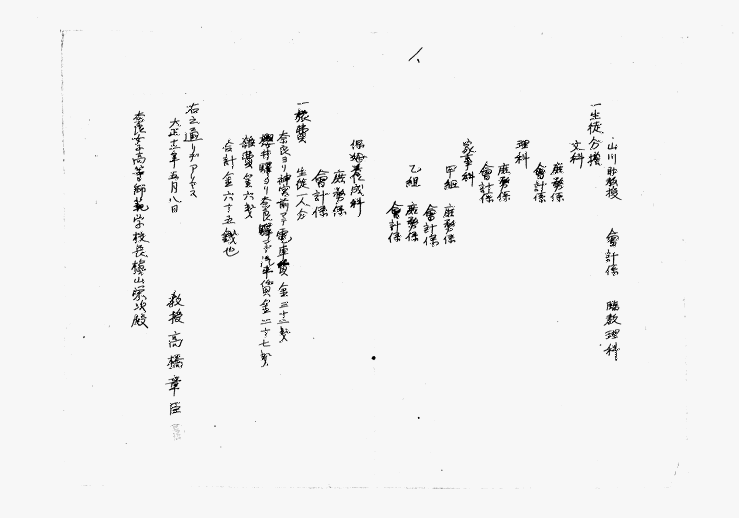 山川助教授 會計係 臨教理科
一生徒分擔
文科
庶務係
會計係
理科
庶務係
會計係
家事科
甲組 庶務係
會計係
乙組 庶務係
會計係
保姆養成科
庶務係
會計係
一旅費 生徒一人分
奈良ヨリ神宮前マデ電車賃 金三十二銭
櫻井驛ヨリ奈良驛マデ汽車賃金二十七銭
雜費 金六銭
合計 金六十五銭也
右之通リデアリマス
大正十二年五月八日
教授 高橋章臣
奈良女子高等師範学校長槇山榮次殿